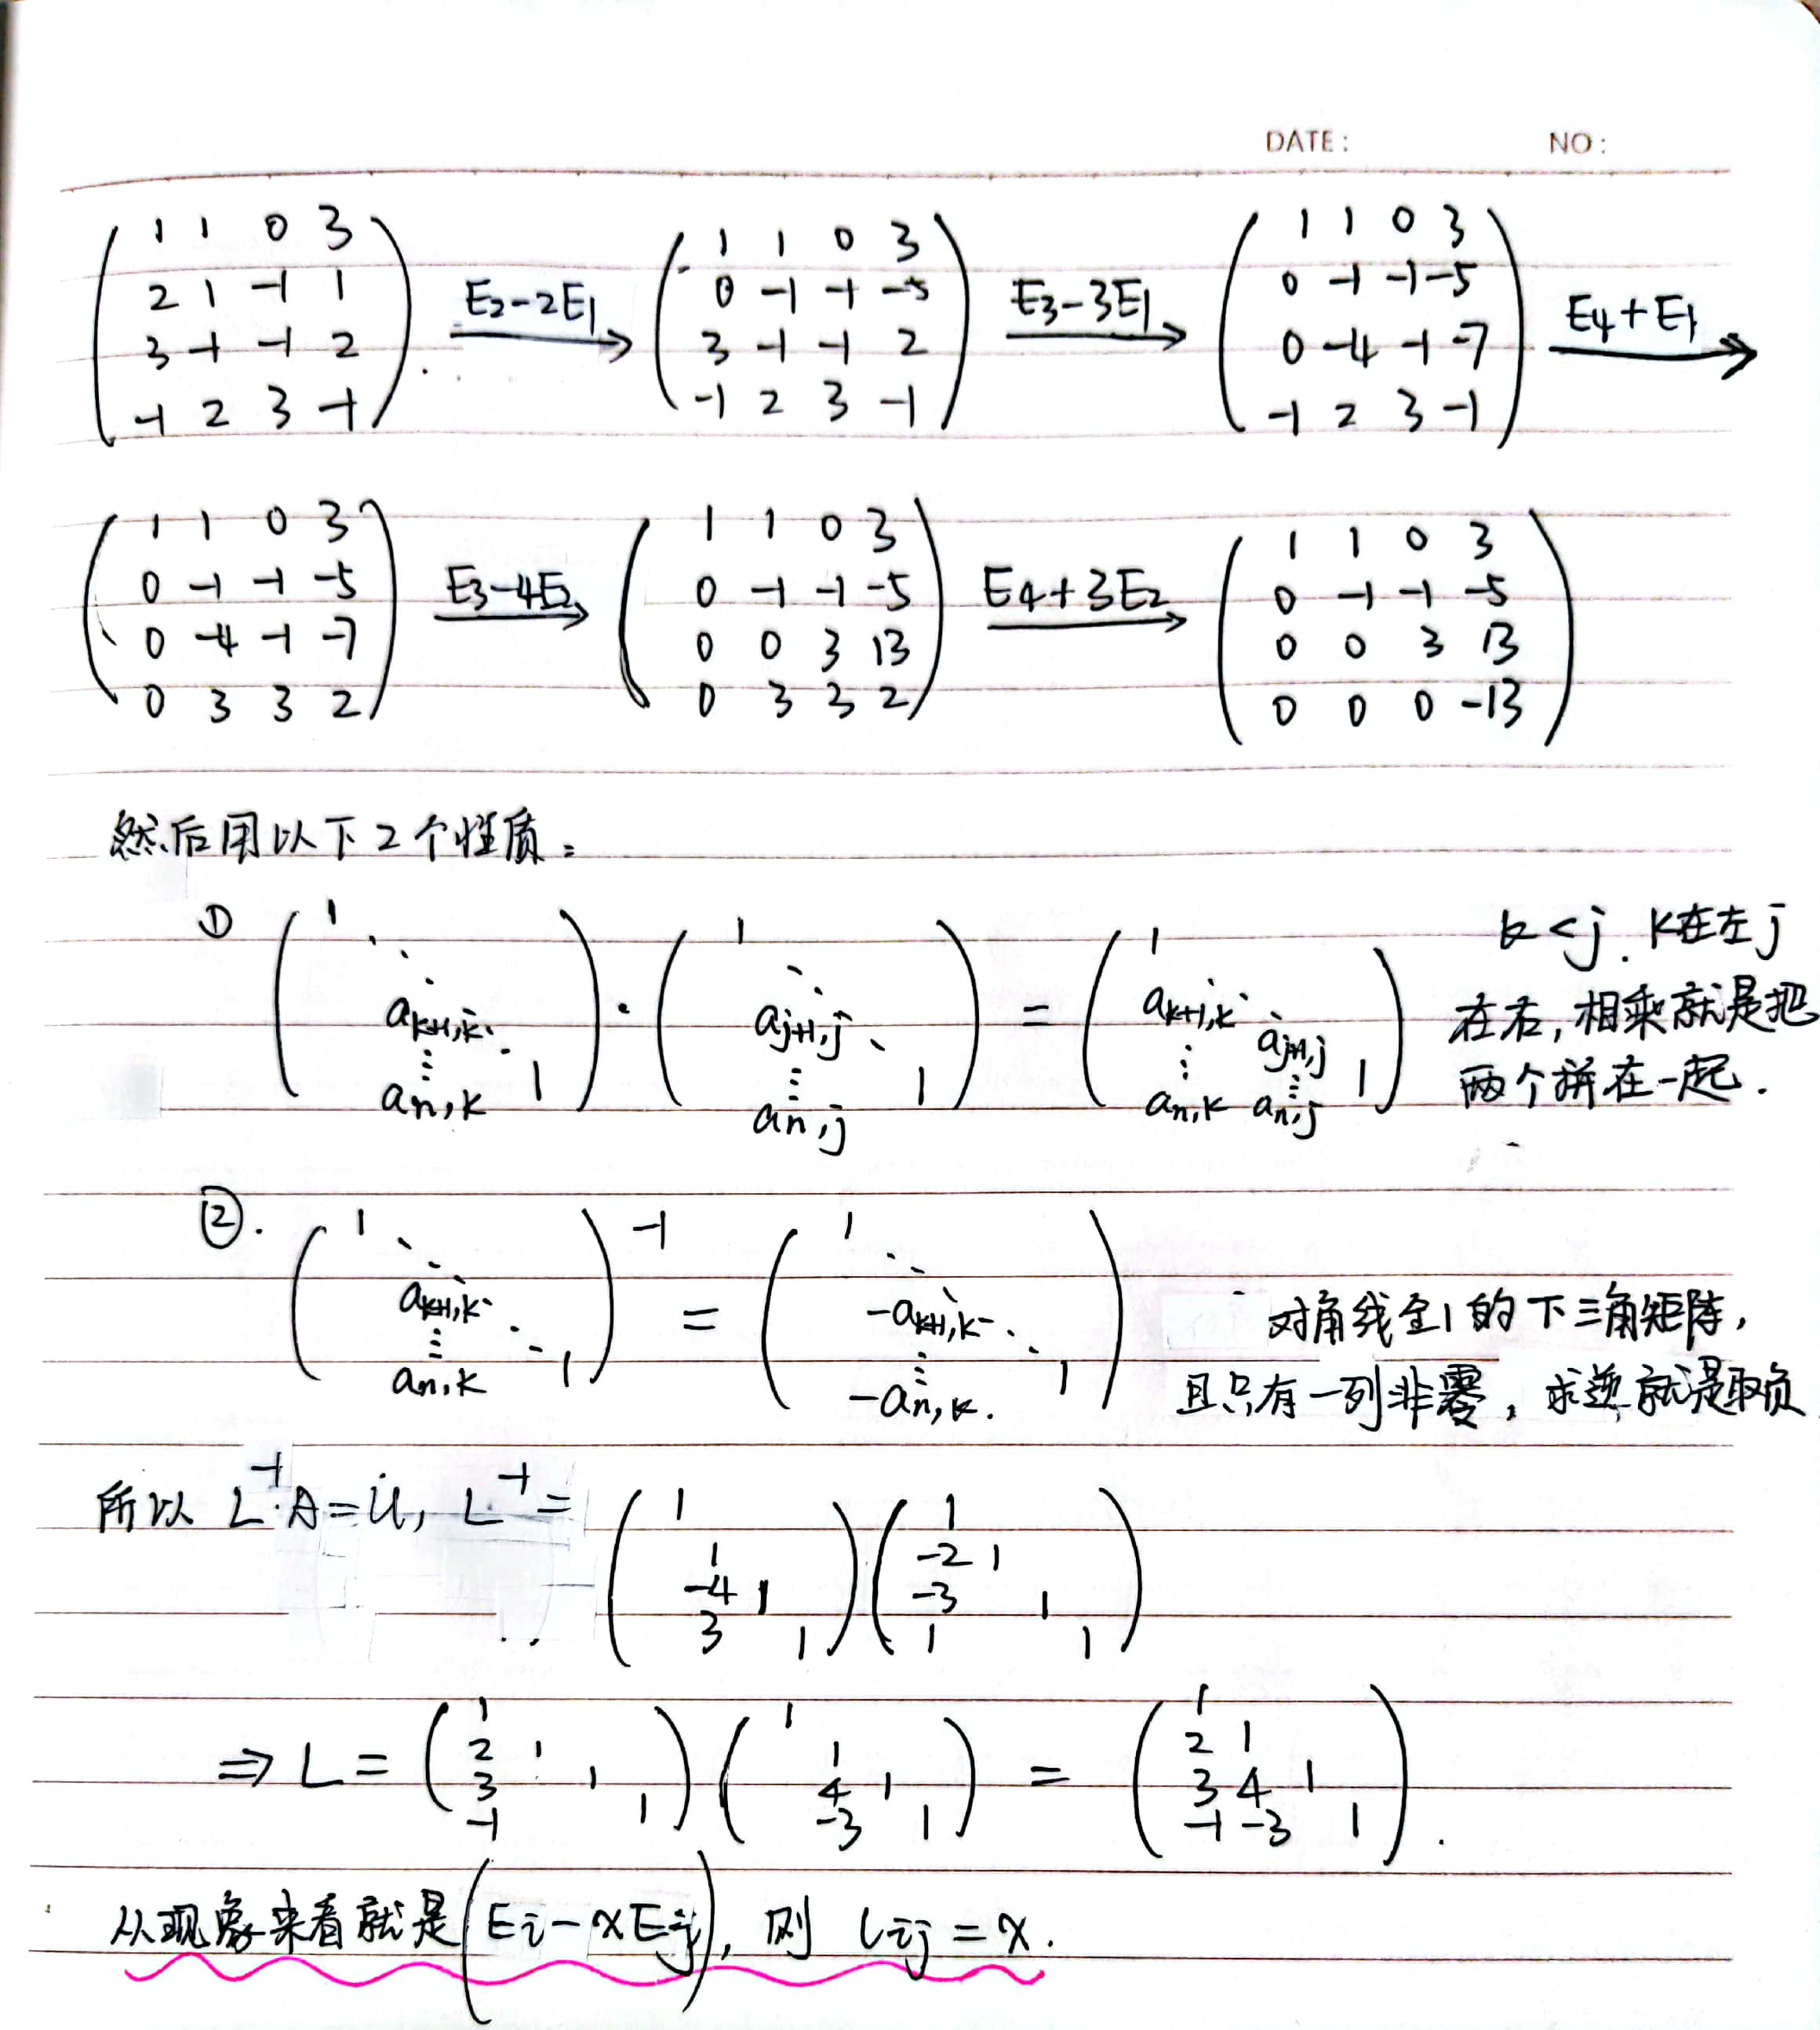 DATE: NO:
( 1 1 0 3 ; 2 1 -1 1 ; 3 -1 -1 2 ; -1 2 3 -1 ) E2-2E1→ ( 1 1 0 3 ; 0 -1 -1 -5 ; 3 -1 -1 2 ; -1 2 3 -1 ) E3-3E1→ ( 1 1 0 3 ; 0 -1 -1 -5 ; 0 -4 -1 -7 ; -1 2 3 -1 ) E4+E1→
( 1 1 0 3 ; 0 -1 -1 -5 ; 0 -4 -1 -7 ; 0 3 3 2 ) E3-4E2→ ( 1 1 0 3 ; 0 -1 -1 -5 ; 0 0 3 13 ; 0 3 3 2 ) E4+3E2→ ( 1 1 0 3 ; 0 -1 -1 -5 ; 0 0 3 13 ; 0 0 0 -13 )
然后用以下2个性质:
① ( 1 ⋱ a_{k+1,k} ⋮ a_{n,k} 1 ) · ( 1 ⋱ a_{j+1,j} ⋮ a_{n,j} 1 ) = ( 1 a_{k+1,k} ⋮ a_{n,k} a_{j+1,j} ⋮ a_{n,j} 1 )
k<j. k在左j
在右,相乘就是把
两个拼在一起.
②. ( 1 ⋱ a_{k+1,k} ⋮ a_{n,k} 1 )^{-1} = ( 1 ⋱ -a_{k+1,k} ⋮ -a_{n,k}. 1 )
对角线全1的下三角矩阵,
且只有一列非零,求逆就是取负
所以 L^{-1}·A=U, L^{-1} = ( 1 ; 1 ; -4 1 ; 3 1 ) ( 1 ; -2 1 ; -3 1 ; 1 1 )
⇒ L = ( 1 ; 2 1 ; 3 1 ; -1 1 ) ( 1 ; 1 ; 4 1 ; -3 1 ) = ( 1 ; 2 1 ; 3 4 1 ; -1 -3 1 ).
从现象来看就是(Ei-xEj),则 lij=x.